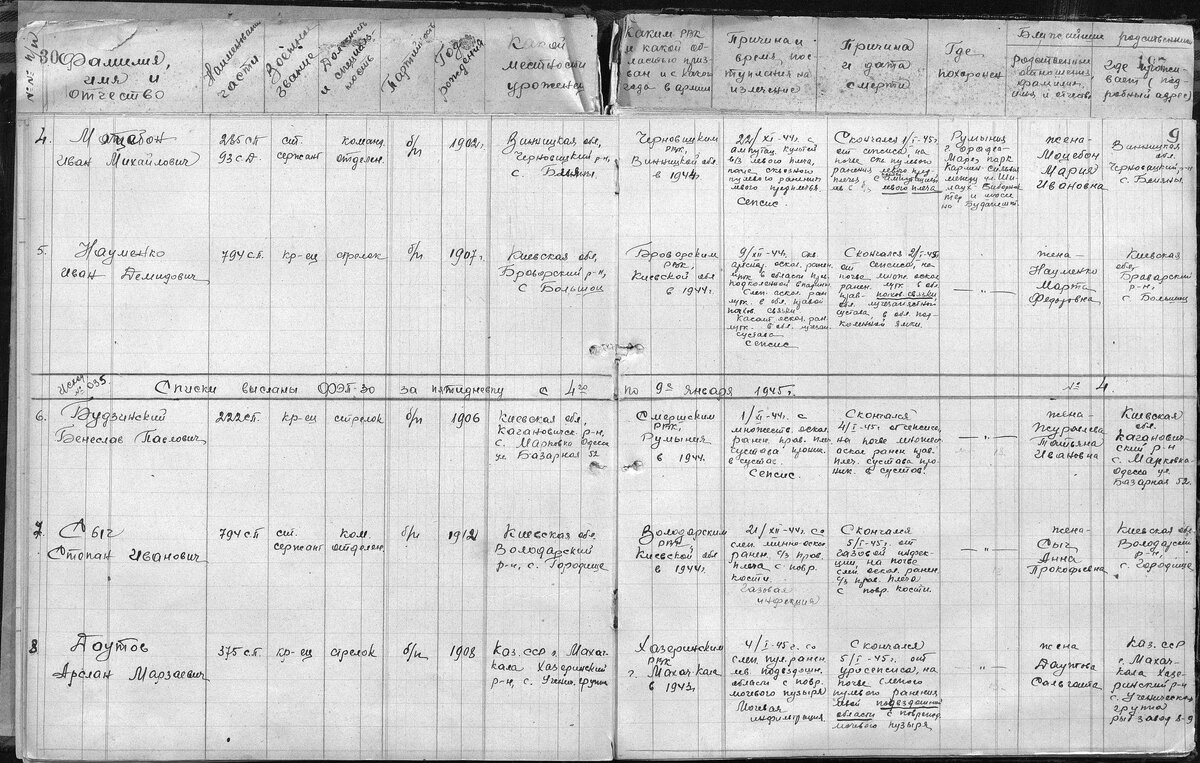 № по п/п
30
Фамилия,
имя и
отчество
Наименован.
части
Военное
звание
Должность
специаль-
ность
Партийность
Год
рождения
Какой
местности
урожен.
Каким РВК
и какой об-
ластью приз-
ван и с какого
года в армии
Причина и
время, пос-
тупления на
излечение
Причина
и дата
смерти
Где
похоронен
Ближайшие родственник
родственные
отношения
фамилия,
имя и отчеств.
Где прожи-
вает под-
робный адрес
9
4.
Иван Михайлович
285 сп
93 сд.
ст.
сержант
команд.
отделен.
б/п
1902г.
Винницкая обл,
Черновицкий р-н,
с.
Черновицким
РВК
Винницкой обл.
в 1944г.
22/XI-44г. с
ампутац. культей
в/з левого плеча,
после сквозного
пулевого ранения
левого предплечья.
Сепсис.
Скончался 1/I-45г.
от сепсиса, на
почве скв. пулевого
ранения левого пред-
плечья с ампутацией
левого плеча
Румыния
г. Орадеа-
Маре, парк
Кармен-Сильва
между ул.
жена-
Моцебон
Мария
Ивановна
Винницкая
обл.
Черновицкий р-н
с.
5.
Науменко
Иван Демидович
794 сп.
кр-ец
стрелок
б/п
1907г.
Киевская обл,
Броворский р-н,
с Большой
Броворским
РВК,
Киевской обл
в 1944г.
9/XI-44г.
оскол. ранен.
в области
подколенной впадины
Слеп. оскол. ран
в обл. правой
Касат. оскол. ран.
в обл.
сустава
Сепсис
Скончался 2/I-45г.
от сепсиса, на
почве множ. оскол
ранен. в обл
прав.
сустава, в обл. под-
коленной ямки.
— „ —
жена-
Науменко
Марта
Федоровна
Киевская
обл,
Броварский
р-н,
с. Большой
Исход
№ 035.
Списки высланы ФЭП-30 за пятидневку с 4го по 9е января 1945г. № 4.
6.
Будзинский
Бенеслав Павлович
222 сп.
кр-ец
стрелок
б/п
1906
Киевская обл,
Кагановическ. р-н,
с. Марковка Одесса
ул Базарная 52
Смершским
РВК,
Румыния
в 1944г.
1/II-44г. с
множеств. оскол.
ранен. прав. плеч
сустава проник.
в сустав.
Сепсис.
Скончался
4/I-45г. от сепсиса,
на почве множест
оскол ранен прав.
плеч. сустава про-
ник. в сустав.
— „ —
жена-
Журавлева
Татьяна
Ивановна
Киевская
обл.
Каганович-
ский р-н
с. Марковка
Одесса ул.
Базарная 52.
7
Сыч
Степан Иванович
794 сп
ст.
сержант
ком.
отделен.
б/п
1912
Киевская обл.
Володарский
р-н, с. Городище
Володарским
РВК
Киевской обл
в 1944г.
21/XII-44г. со
слеп. минно-оскол
ранен. с/з прав.
плеча с повр.
кости.
Газовая
инфекция
Скончался
5/I-45г. от
газовой инфек-
ции, на почве
слеп оскол. ранен.
с/з прав. плеча
с повр. кости.
— „ —
жена-
Сыч
Анна
Прокофьевна
Киевская обл
Володарский
р-н,
с. Городище
8
Даутов
Арслан Марзаевич
375 сп.
кр-ец
стрелок
б/п
1908
Каз. ССР г. Махач-
кала Хазеринский
р-н, с. Ученич. группа
Хазеринским
РВК
г. Махачкала
в 1943г.
4/I-45г. со
слеп. пул. ранен
лев подвздошн.
области с повр.
мочевого пузыря
Мочевая
инфильтрация.
Скончался
5/I-45г., от
уросепсиса, на
почве слепого
пулевого ранения
левой подвздошной
области с поврежд.
мочевого пузыря
— „ —
жена
Даутова
Сальгата
Каз. ССР
г. Махач-
кала Хазе-
ринский р-н
с. Ученическая
группа
рыбзавод 8-9